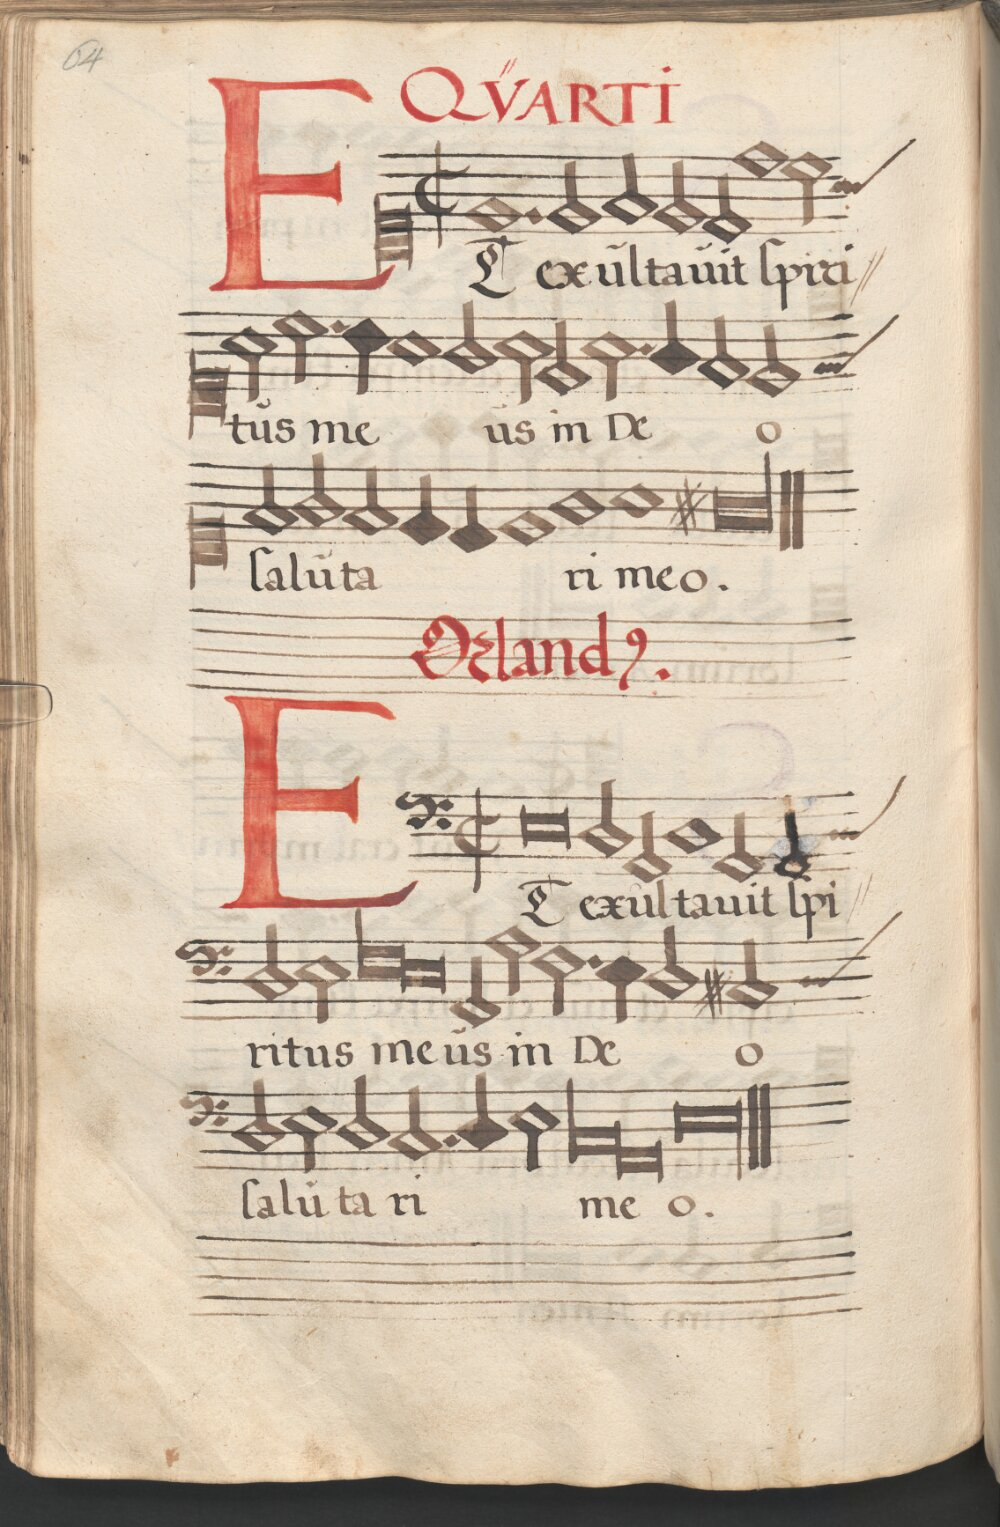 64
QVARTI
ET exultauit spiri
tus me us in De o
saluta ri meo.
Orlandꝰ.
ET exultauit spi
ritus meus in De o
saluta ri me o.